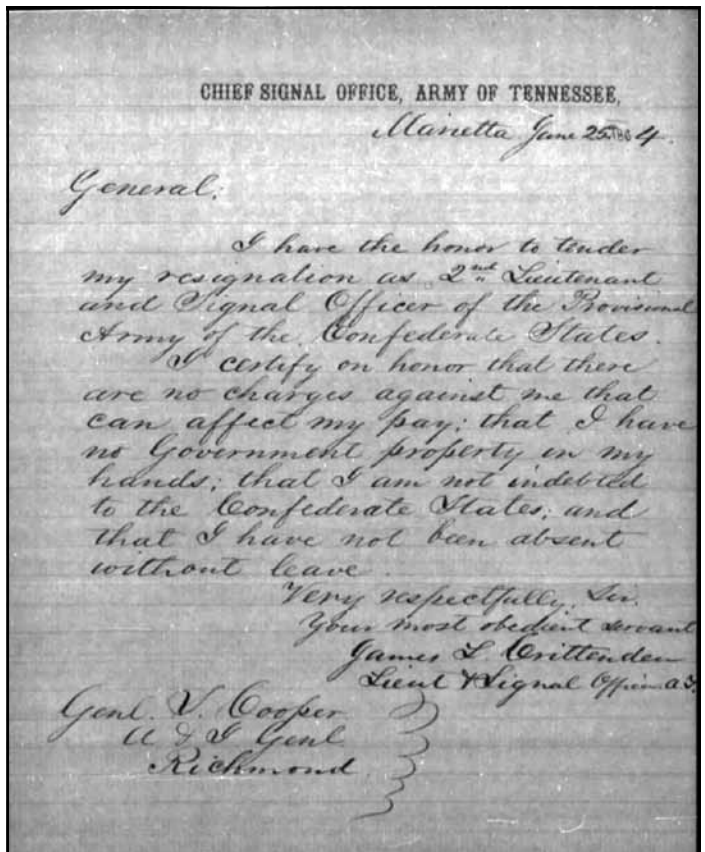 CHIEF SIGNAL OFFICE, ARMY OF TENNESSEE,
Marietta June 25th 1864.
General:
I have the honor to tender
my resignation as 2nd Lieutenant
and Signal Officer of the Provisional
Army of the Confederate States.
I certify on honor that there
are no charges against me that
can affect my pay; that I have
no Government property in my
hands; that I am not indebted
to the Confederate States; and
that I have not been absent
without leave.
Very respectfully, Sir.
Your most obedient servant
James L. Crittenden
Lieut & Signal Officer A.T.
Genl. S. Cooper
A & I Genl
Richmond